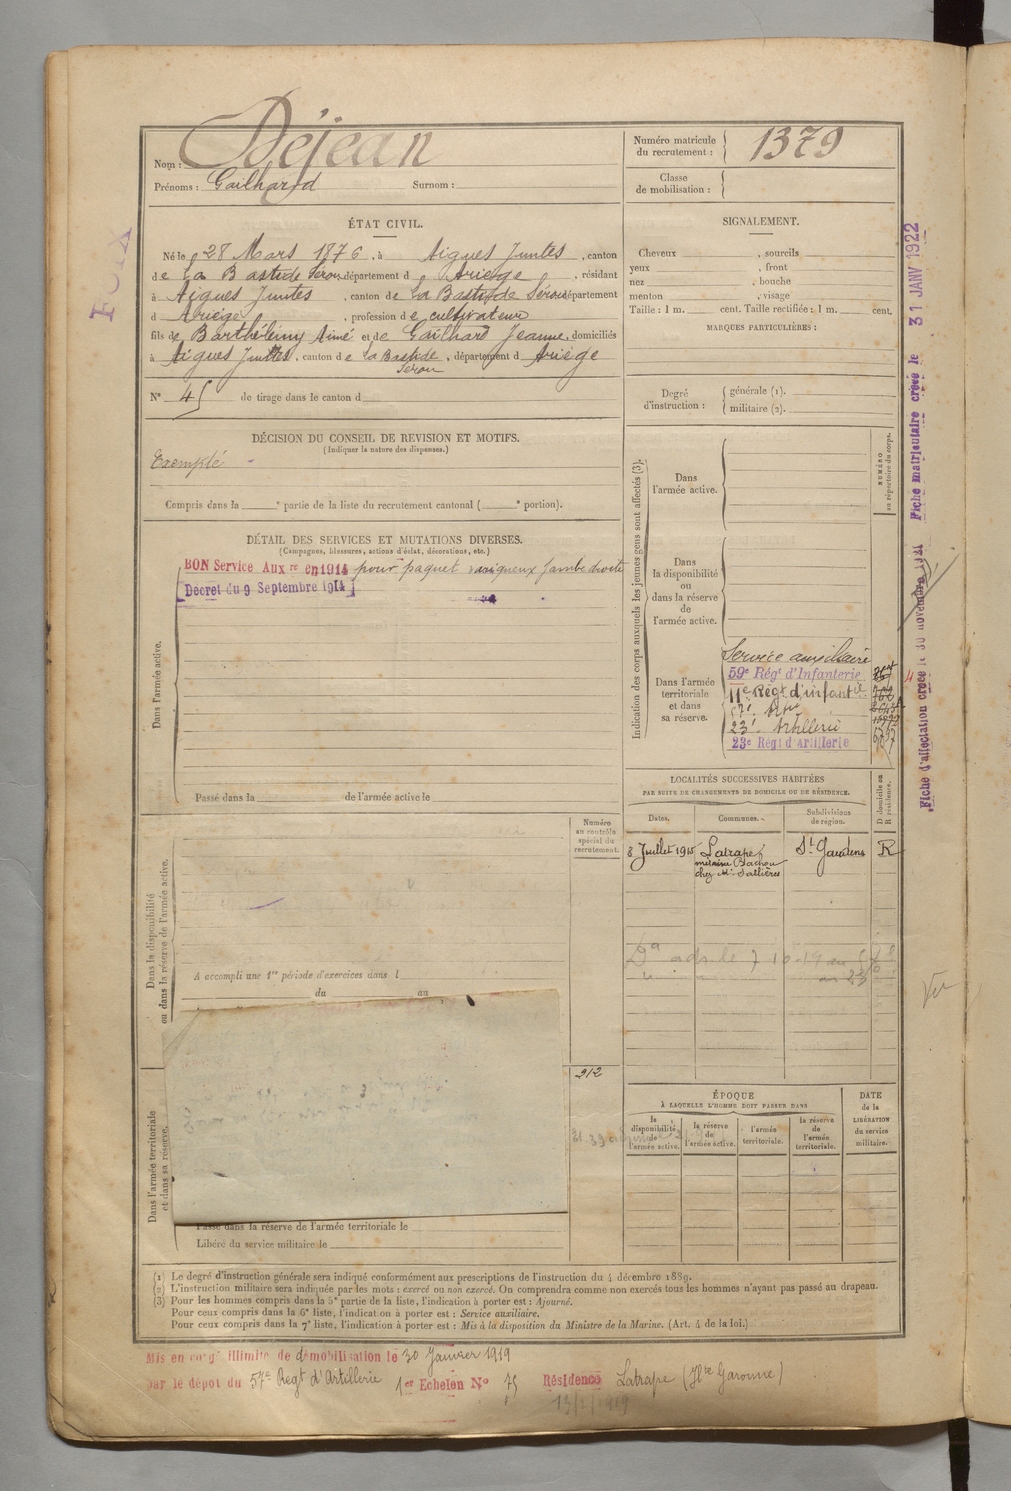 Nom : Déjean
Prénoms : Gailhard Surnom :
Numéro matricule du recrutement : 1379
Classe de mobilisation :
ÉTAT CIVIL.
Né le 28 Mars 1876, à Aigues Juntes, canton
de La Bastide Serou département d Ariège, résidant
à Aigues Juntes, canton de La Bastide Sérou département
d Ariège, profession de cultivateur
fils de Barthélemy Aimé et de Gailhard Jeanne, domiciliés
à Aigues Juntes, canton de la Bastide Serou, département d Ariège
N° 45 de tirage dans le canton d
SIGNALEMENT.
Cheveux , sourcils
yeux , front
nez , bouche
menton , visage
Taille : 1 m. cent. Taille rectifiée : 1 m. cent.
MARQUES PARTICULIÈRES :
Degré d'instruction : générale (1).
militaire (2).
DÉCISION DU CONSEIL DE REVISION ET MOTIFS.
(Indiquer la nature des dispenses.)
Exempté
Compris dans la e partie de la liste du recrutement cantonal ( e portion).
DÉTAIL DES SERVICES ET MUTATIONS DIVERSES.
(Campagnes, blessures, actions d'éclat, décorations, etc.)
BON Service Aux re en 1914 pour paquet variqueux jambe droite
Décret du 9 Septembre 1914
Dans l'armée active.
Passé dans la de l'armée active le
Dans la disponibilité ou dans la réserve de l'armée active.
Numéro au contrôle spécial du recrutement.
A accompli une 1re période d'exercices dans l
du au
212
Dans l'armée territoriale et dans sa réserve.
Passé dans la réserve de l'armée territoriale le
Libéré du service militaire le
Indication des corps auxquels les jeunes gens sont affectés (3).
NUMÉRO au répertoire du corps.
Dans l'armée active.
Dans la disponibilité ou dans la réserve de l'armée active.
Dans l'armée territoriale et dans sa réserve.
Service auxiliaire
59e Régt d'Infanterie
11e Régt d'infantie
57e Artie
23e Artillerie
23e Régt d'Artillerie
LOCALITÉS SUCCESSIVES HABITÉES
PAR SUITE DE CHANGEMENTS DE DOMICILE OU DE RÉSIDENCE.
Dates. Communes. Subdivisions de région. D domicile ou R résidence.
8 Juillet 1915 Latrape St Gaudens R
chez Mr
ÉPOQUE
À LAQUELLE L'HOMME DOIT PASSER DANS
la disponibilité de l'armée active.
la réserve de l'armée active.
l'armée territoriale.
la réserve de l'armée territoriale.
DATE de la LIBÉRATION du service militaire.
(1) Le degré d'instruction générale sera indiqué conformément aux prescriptions de l'instruction du 4 décembre 1889.
(2) L'instruction militaire sera indiquée par les mots : exercé ou non exercé. On comprendra comme non exercés tous les hommes n'ayant pas passé au drapeau.
(3) Pour les hommes compris dans la 5e partie de la liste, l'indication à porter est : Ajourné.
Pour ceux compris dans la 6e liste, l'indication à porter est : Service auxiliaire.
Pour ceux compris dans la 7e liste, l'indication à porter est : Mis à la disposition du Ministre de la Marine. (Art. 4 de la loi.)
Mis en congé illimité de démobilisation le 30 Janvier 1919
par le dépôt du 57e Regt d'Artillerie 1er Echelon N° 75 Résidence Latrape (Hte Garonne)
FOIX
Fiche d'affectation créée le 30 novembre 1921 Fiche matriculaire créée le 31 JANV 1922
Vu